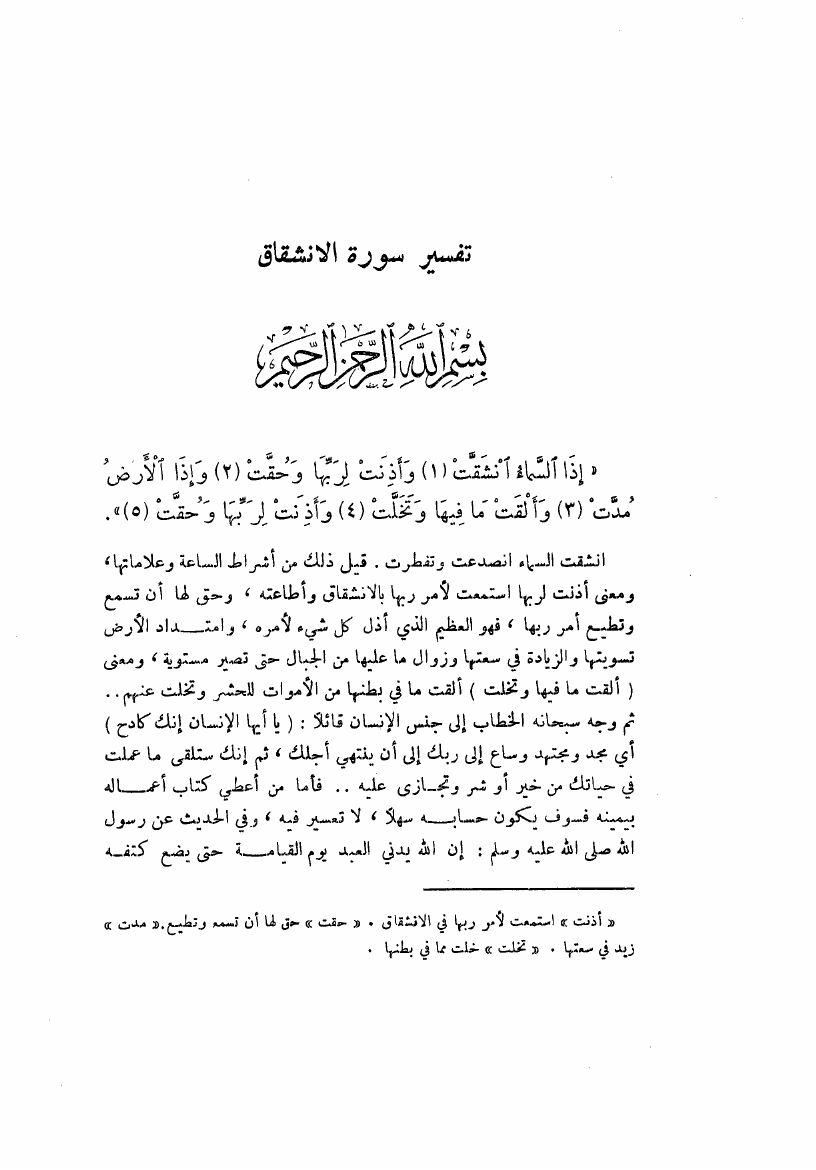 تفسير سورة الانشقاق
بِسْمِ ٱللَّهِ ٱلرَّحْمَٰنِ ٱلرَّحِيمِ
« إِذَا ٱلسَّمَاءُ ٱنْشَقَّتْ (١) وَأَذِنَتْ لِرَبِّهَا وَحُقَّتْ (٢) وَإِذَا ٱلْأَرْضُ
مُدَّتْ (٣) وَأَلْقَتْ مَا فِيهَا وَتَخَلَّتْ (٤) وَأَذِنَتْ لِرَبِّهَا وَحُقَّتْ (٥)».
انشقت السماء انصدعت وتفطرت . قيل ذلك من أشراط الساعة وعلاماتها،
ومعنى أذنت لربها استمعت لأمر ربها بالانشقاق وأطاعته ، وحق لها أن تسمع
وتطيع أمر ربها ، فهو العظيم الذي أذل كل شيء لأمره ، وامتـــداد الأرض
تسويتها والزيادة في سعتها وزوال ما عليها من الجبال حتى تصير مستوية ، ومعنى
( ألقت ما فيها وتخلت ) ألقت ما في بطنها من الأموات للحشر وتخلت عنهم..
ثم وجه سبحانه الخطاب إلى جنس الإنسان قائلاً : ( يا أيها الإنسان إنك كادح )
أي مجد ومجتهد وساع إلى ربك إلى أن ينتهي أجلك ، ثم إنك ستلقى ما عملت
في حياتك من خير أو شر وتجـازى عليه .. فأما من أعطي كتاب أعمـــاله
بيمينه فسوف يكون حسابـــه سهلاً ، لا تعسير فيه ، وفي الحديث عن رسول
الله صلى الله عليه وسلم : إن الله يدني العبد يوم القيامـــة حتى يضع كتفـه
« أذنت » استمعت لأمر ربها في الانشقاق . « حقت » حق لها أن تسمع وتطيع.« مدت »
زيد في سعتها . « تخلت » خلت مما في بطنها .